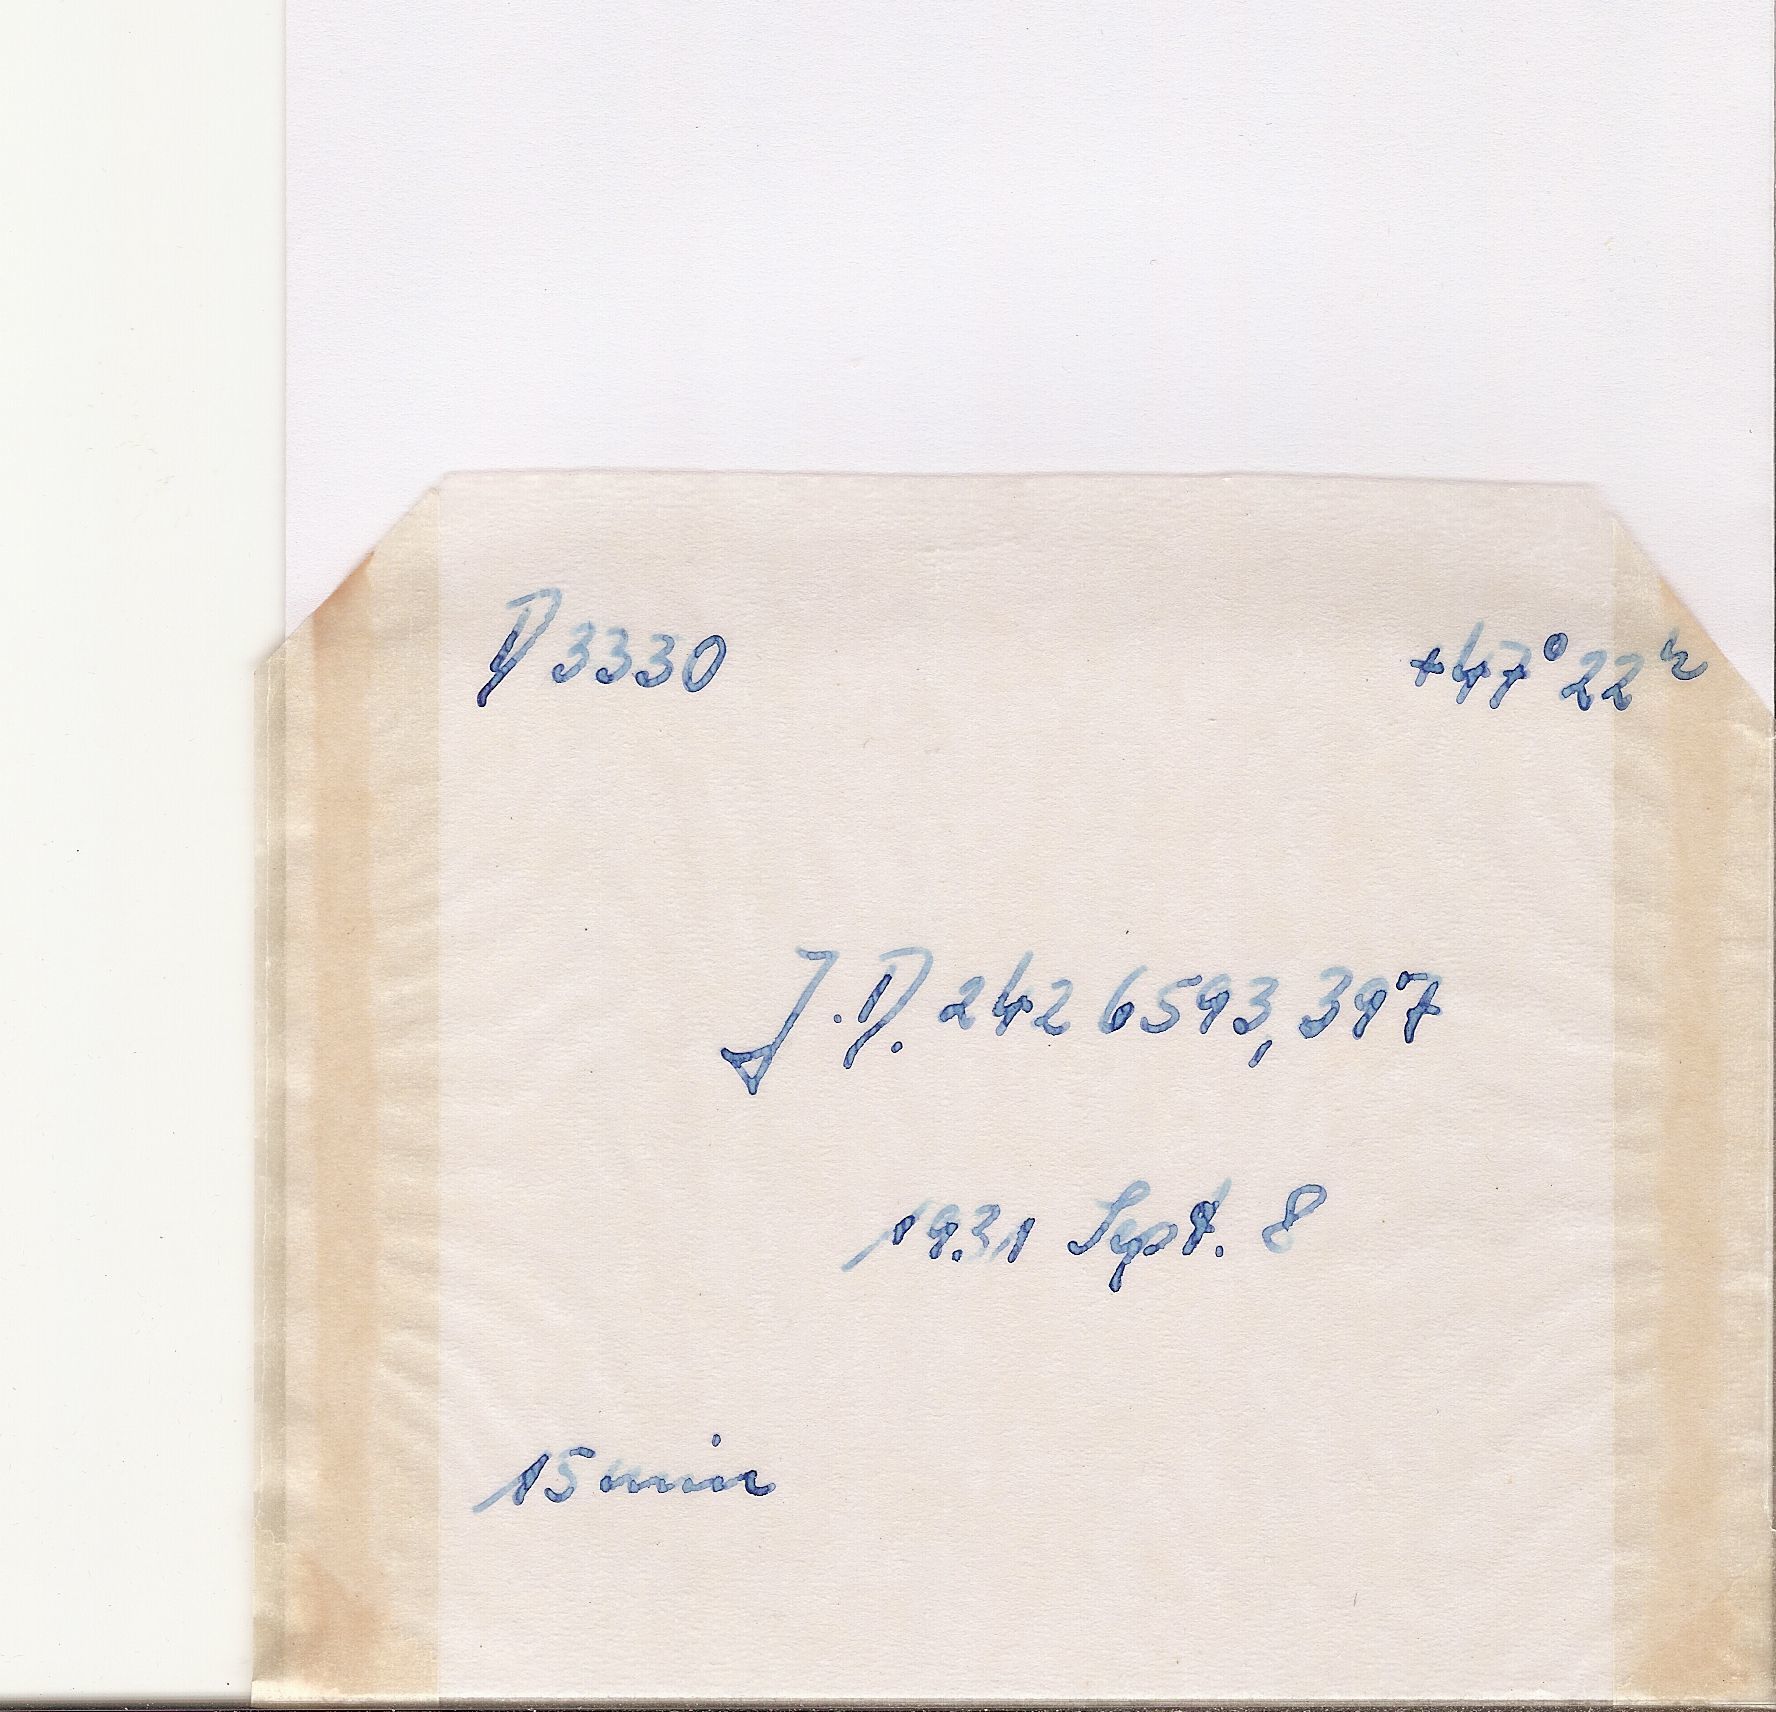 D 3330 +47° 22ʰ
J.D. 242 6593,397
1931 Sept. 8
15 min